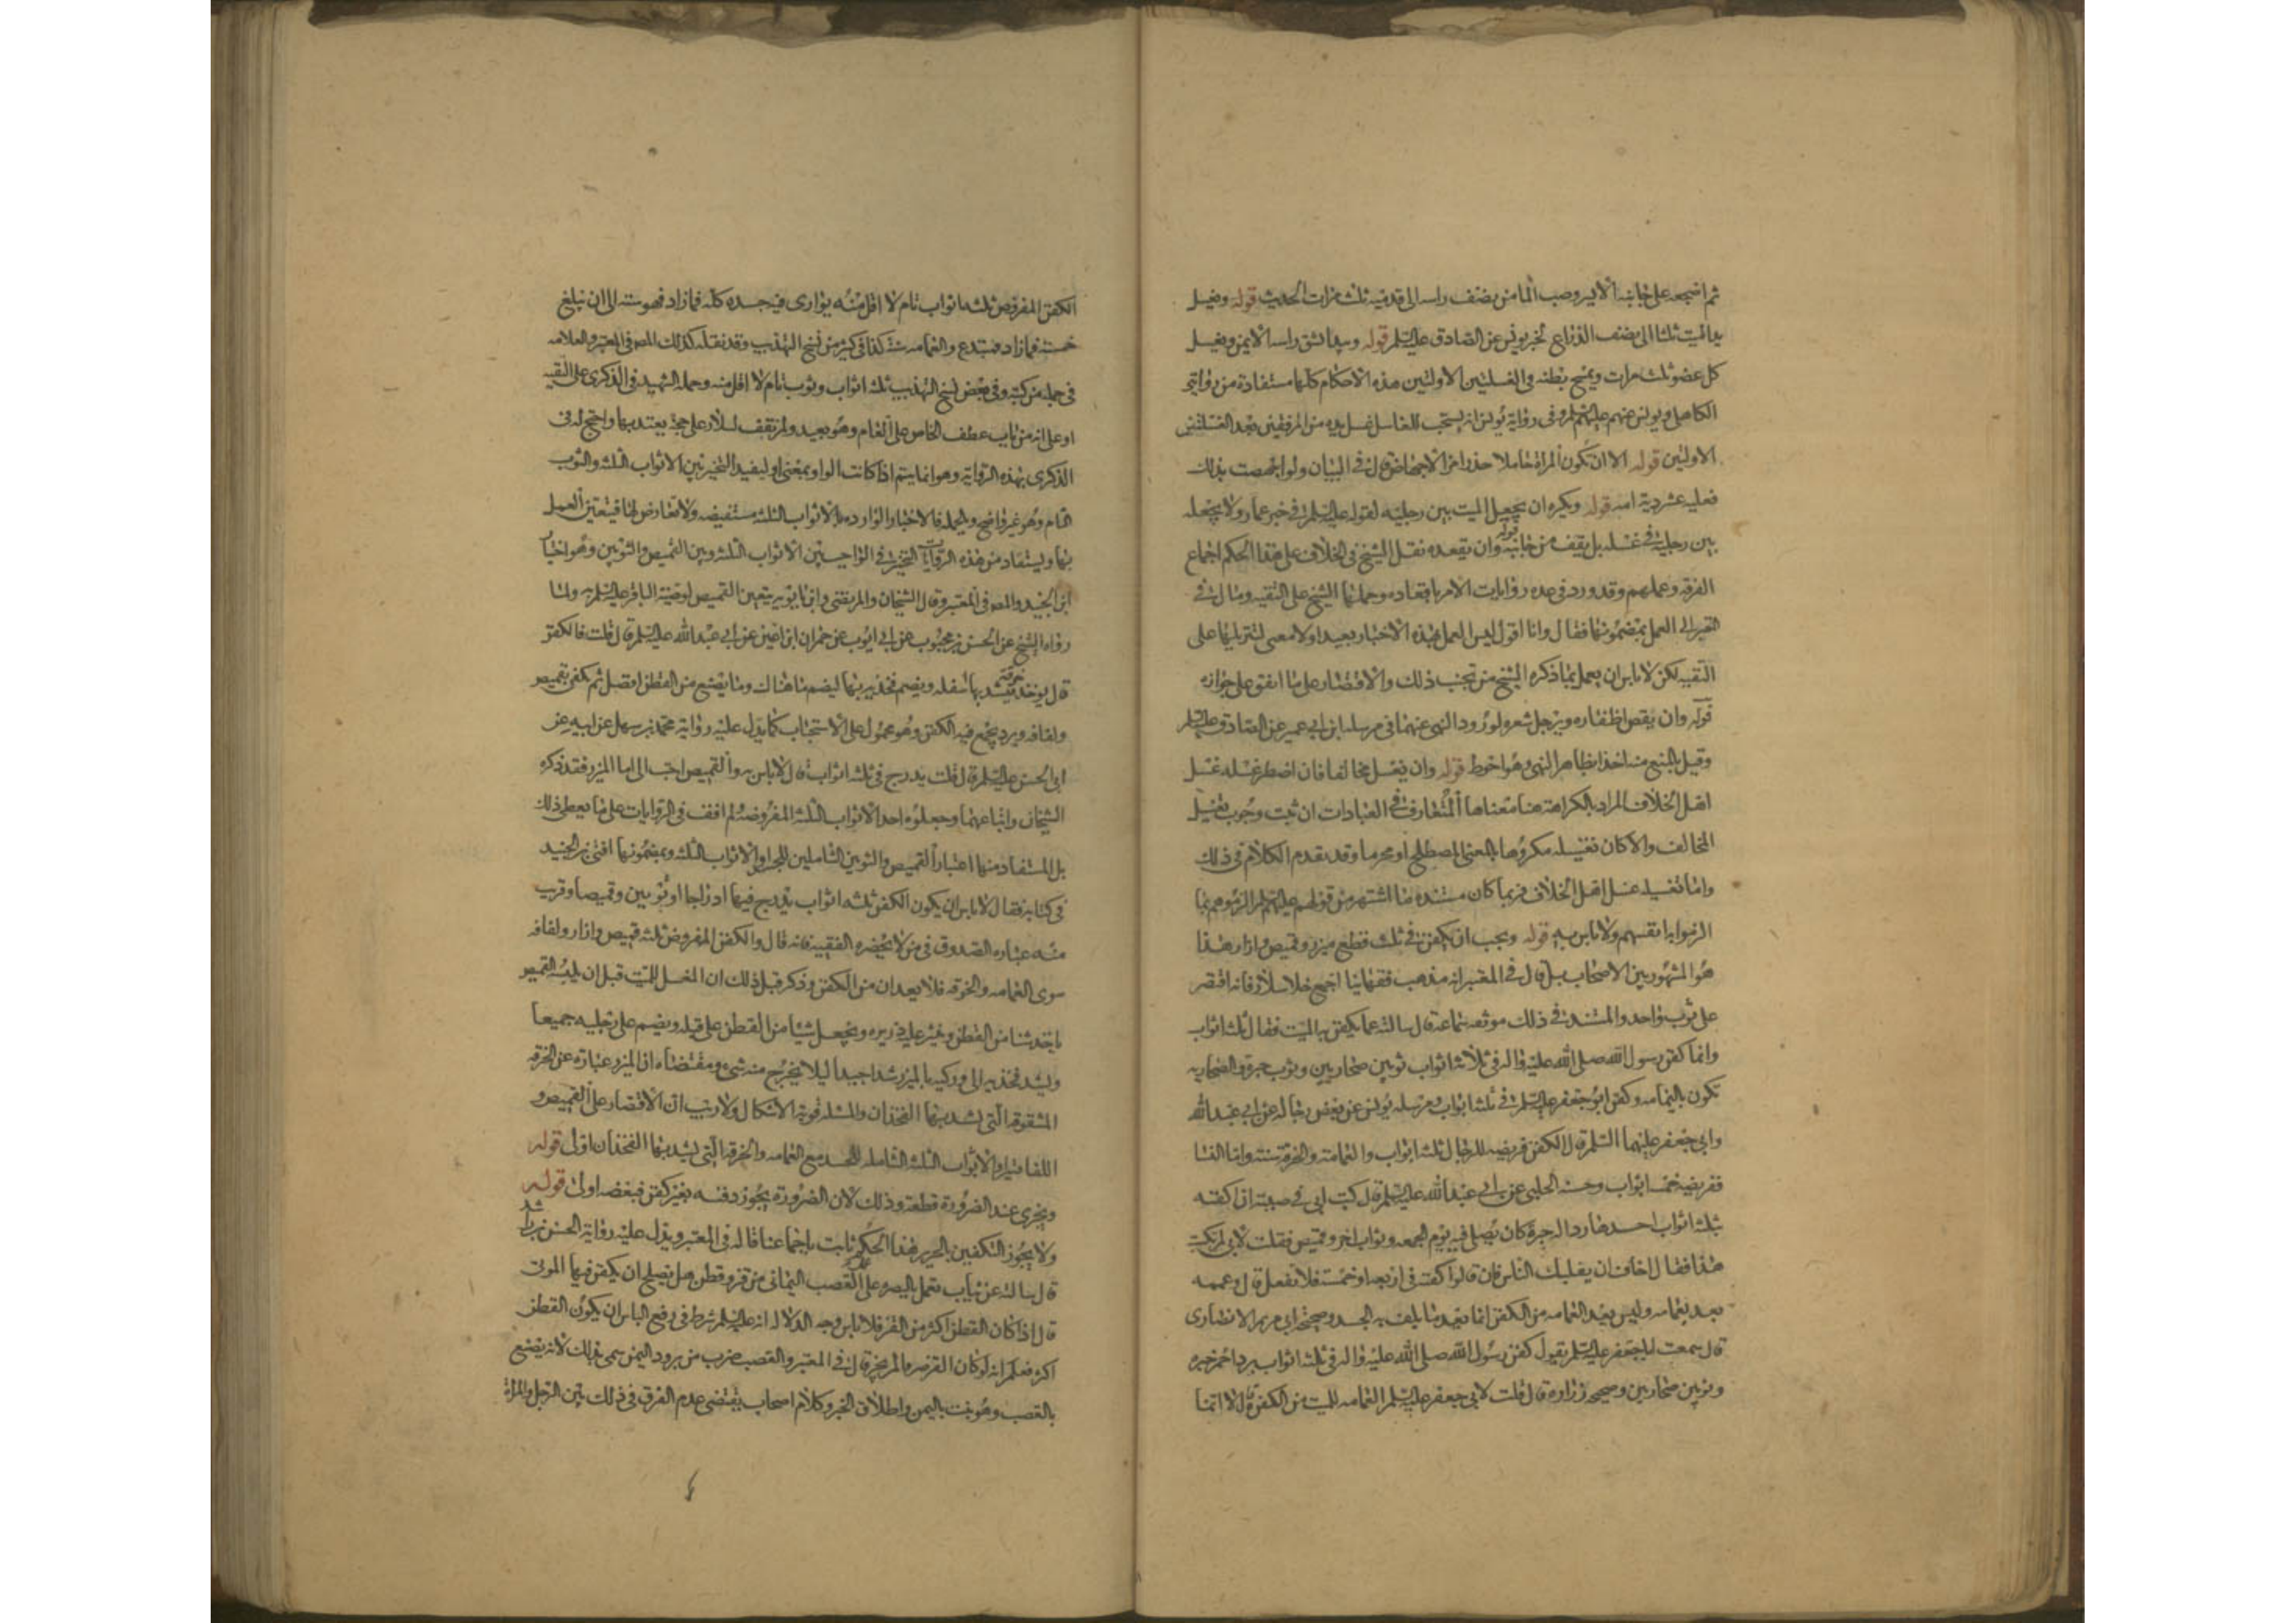 ثم اضجعه على جانبه الايسر وصب الماء من نصف راسه الى قدميه ثلث مرات الحديث قوله ويغسل
يد الميت ثلثا الى نصف الذراع لخبر يونس عن الصادق عليه السلم قوله ويبدا بشق راسه الايمن ويغسل
كل عضو ثلث مرات ويمسح بطنه في الغسلتين الاولتين هذه الاحكام كلها مستفادة من روايتي
الكاهلي ويونس عنهم عليهم السلم وفى رواية يونس انه يستحب للغاسل غسل يديه من المرفقين بعد الغسلتين
الاولتين قوله الا ان تكون المراة حاملا حذرا من الاجهاض قال في البيان ولو اجهضت بذلك
فعليه عشر دية امه قوله ويكره ان يجعل الميت بين رجليه لقوله عليه السلم في خبر عمار ولا يجعله
بين رجليه في غسله بل يقف من جانبه قوله وان يقعده نقل الشيخ في الخلاف على هذا الحكم اجماع
الفرقه وعملهم وقد ورد في عده روايات الامر باقعاده وحملها الشيخ على التقيه ومال في
المعتبر الى العمل بمضمونها فقال وانا اقول ليس العمل بهذه الاخبار بعيدا ولا معنى لتنزيلها على
التقيه لكن لا باس ان يعمل بما ذكره الشيخ من تجنب ذلك والاقتصار على ما اتفق على جوازه
قوله وان يقص اظفاره ويرجل شعره لورود النهى عنهما في مرسله ابن ابي عمير عن الصادق عليه السلم
وقيل بالمنع منه اخذا بظاهر النهى وهو احوط قوله وان يغسل مخالفا فان اضطر غسله غسل
اهل الخلاف المراد بالكراهة هنا معناها المتعارف في العبادات ان ثبت وجوب تغسيل
المخالف والا كان تغسيله مكروها بالمعنى المصطلح او محرما وقد تقدم الكلام في ذلك
واما تغسيله غسل اهل الخلاف فربما كان مستنده ما اشتهر من قولهم عليهم السلم الزموهم بما
الزموا به انفسهم ولا باس به قوله ويجب ان يكفن في ثلث قطع ميزر وقميص وازار هذا
هو المشهور بين الاصحاب بل قال في المعتبر انه مذهب فقهائنا اجمع خلا سلار فانه اقتصر
على ثوب واحد والمستند في ذلك موثقه سماعة قال سالته عما يكفن به الميت فقال ثلثه اثواب
وانما كفن رسول الله صلى الله عليه واله في ثلاثة اثواب ثوبين صحاريين وثوب حبرة والصحاريه
تكون باليمامه وكفن ابو جعفر عليه السلم في ثلثه اثواب ومرسله يونس عن بعض رجاله عن ابي عبد الله
وابي جعفر عليهما السلم قال الكفن فريضه للرجال ثلثه اثواب والعمامة والخرقة سنة واما النسا
ففريضه خمسه اثواب وحسنه الحلبي عن ابي عبد الله عليه السلم قال كتب ابي في وصيته ان اكفنه
بثلثه اثواب احدها رداء له حبرة كان يصلى فيه يوم الجمعه وثواب اخر وقميص فقلت لابي لم تكتب
هذا فقال اخاف ان يغلبك الناس فان قالوا كفنه في اربعة او خمسة فلا تفعل قال وعممه
بعد بعمامه وليس يعد العمامه من الكفن انما يعد ما يلف به الجسد وصحيحة ابي مريم الانصارى
قال سمعت ابا جعفر عليه السلم يقول كفن رسول الله صلى الله عليه واله في ثلثه اثواب برد احمر حبره
وثوبين صحاريين وصحيحه زراره قال قلت لابي جعفر عليه السلم العمامه للميت من الكفن قال لا انما
الكفن المفروض ثلثه اثواب تام لا اقل منه يوارى فيه جسده كله فما زاد فهو سنه الى ان يبلغ
خمسة فما زاد فمبتدع والعمامه سنة كذا في كثير من نسخ التهذيب وقد نقله كذلك المصـ في المعتبر والعلامه
في جمله من كتبه وفى بعض نسخ التهذيب ثلثه اثواب وثوب تام لا اقل منه وحمله الشهيد في الذكرى على التقيه
او على انه من باب عطف الخاص على العام وهو بعيد ولم نقف لسلار على حجة يعتد بها واحتج له في
الذكرى بهذه الرواية وهو انما يتم اذا كانت الواو بمعنى او ليفيد التخيير بين الاثواب الثلثه والثوب
التام وهو غير واضح وبالجمله فالاخبار الوارده بالاثواب الثلثه مستفيضه ولا معارض لها فيتعين العمل
بها ويستفاد من هذه الروايات التخيير في الواجب بين الاثواب الثلثه وبين القميص والثوبين وهو اختيار
ابن الجنيد والمصـ في المعتبر وقال الشيخان والمرتضى وابن بابويه يتعين القميص لوصية الباقر عليه السلم به ولما
رواه الشيخ عن الحسن بن محبوب عن ابي ايوب عن حمران ابن اعين عن ابي عبد الله عليه السلم قال قلت فالكفن
قال يوخذ خرقة فيشد بها سفله ويضم فخذيه بها ليضم ما هناك وما يصنع من القطن افضل ثم يكفن بقميص
ولفافه وبرد يجمع فيه الكفن وهو محمول على الاستحباب كما يدل عليه رواية محمد بن سهل عن ابيه عن
ابي الحسن عليه السلم قال قلت يدرج في ثلثه اثواب قال لا باس به والقميص احب الى اما الميزر فقد ذكره
الشيخان واتباعهما وجعلوه احد الاثواب الثلثه المفروضه ولم اقف في الروايات على ما يعطى ذلك
بل المستفاد منها اعتبار القميص والثوبين الشاملين للجسد او الاثواب الثلثه وبمضمونها افتى بن الجنيد
في كتابه فقال لا باس ان يكون الكفن ثلثه اثواب يدرج فيها ادراجا او ثوبين وقميصا وقريب
منه عباره الصدوق في من لا يحضره الفقيه فانه قال والكفن المفروض ثلثه قميص وازار ولفافه
سوى العمامه والخرقه فلا يعدان من الكفن وذكر قبل ذلك ان المغسل للميت قبل ان يلبسه القميص
ياخذ شيئا من القطن وينثر عليه ذريره ويجعل شيئا من القطن على قبله ويضم على رجليه جميعا
ويشد فخذيه الى وركيه بالميزر شدا جيدا ليلا يخرج منه شىء ومقتضاه ان الميزر عباره عن الخرقه
المشقوقه التي يشد بها الفخذان والمسئله قوية الاشكال ولا ريب ان الاقتصار على القميص و
اللفافتين او الاثواب الثلثه الشامله للجسد مع العمامه والخرقه التي يشد بها الفخذان اولى قوله
ويجزى عند الضرورة قطعة وذلك لان الضرورة يجوز دفنه بغير كفن فبعضه اولى قوله
ولا يجوز التكفين بالحرير هذا الحكم ثابت باجماعنا قاله في المعتبر ويدل عليه رواية الحسن بن راشد
قال سالته عن ثياب تعمل بالبصره على عمل القصب اليماني من قز وقطن هل يصلح ان يكفن فيها الموتى
قال اذا كان القطن اكثر من القز فلا باس وجه الدلاله انه عليه السلم شرط في رفع الباس ان يكون القطن
اكثر فعلم انه لو كان القز صرفا لم يجز قال في المعتبر والقصب ضرب من برود اليمن سمى بذلك لانه يصنع
بالقصب وهو نبت باليمن واطلاق الخبر وكلام اصحاب يقتضى عدم الفرق في ذلك بين الرجل والمراة